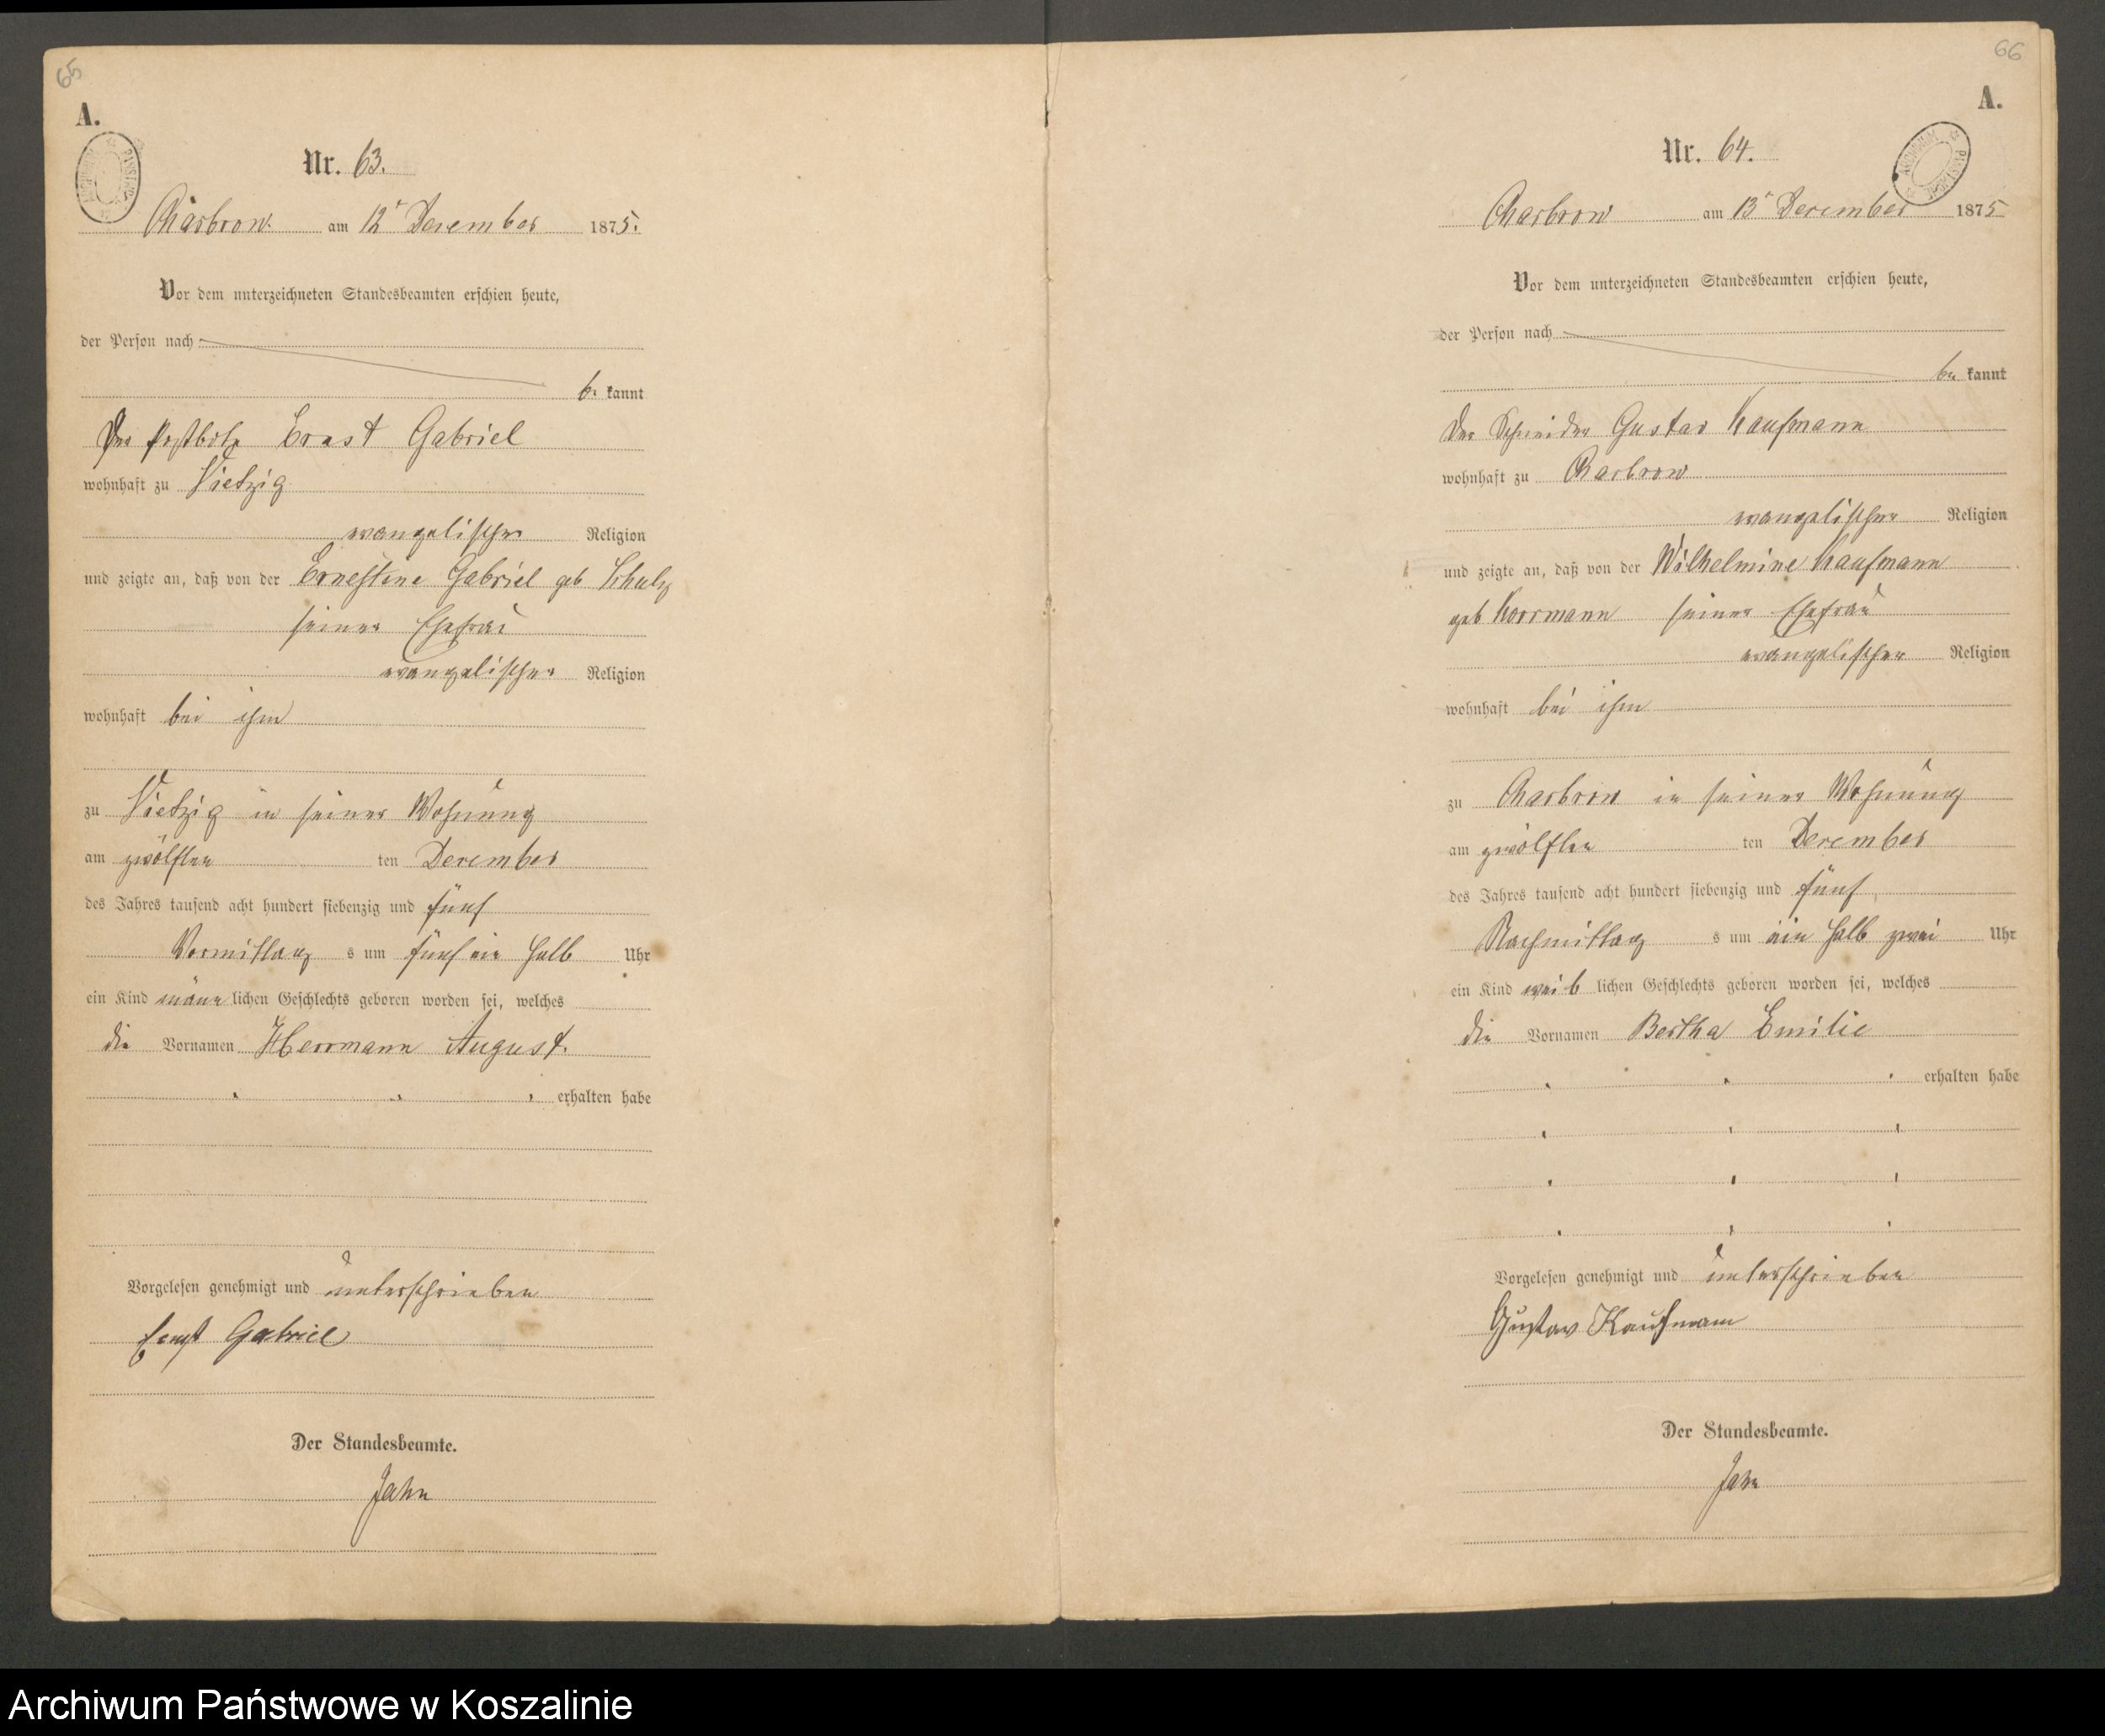 65
A.
ARCHIWUM PAŃSTWOWE
Nr. 63.
Charbrow. am 12t December 1875.
Vor dem unterzeichneten Standesbeamten erschien heute,
der Person nach
be kannt
Der Postbote Ernst Gabriel
wohnhaft zu Vietzig
evangelischer Religion
und zeigte an, daß von der Ernestine Gabriel geb Schulz
seiner Ehefrau
evangelischer Religion
wohnhaft bei ihm
zu Vietzig in seiner Wohnung
am zwölften ten December
des Jahres tausend acht hundert siebenzig und fünf
Vormittag s um fünf ein halb Uhr
ein Kind männ lichen Geschlechts geboren worden sei, welches
die Vornamen Herrmann August.
erhalten habe
Vorgelesen genehmigt und unterschrieben
Ernst Gabriel
Der Standesbeamte.
Jahn
66
A.
ARCHIWUM PAŃSTWOWE
Nr. 64.
Charbrow am 13t December 1875
Vor dem unterzeichneten Standesbeamten erschien heute,
der Person nach
be kannt
Der Schneider Gustav Kaufmann
wohnhaft zu Charbrow
evangelischer Religion
und zeigte an, daß von der Wilhelmine Kaufmann
geb Horrmann seiner Ehefrau
evangelischer Religion
wohnhaft bei ihm
zu Charbrow in seiner Wohnung
am zwölften ten December
des Jahres tausend acht hundert siebenzig und fünf
Nachmittag s um ein halb zwei Uhr
ein Kind weib lichen Geschlechts geboren worden sei, welches
die Vornamen Bertha Emilie
erhalten habe
Vorgelesen genehmigt und unterschrieben
Gustav Kaufmann
Der Standesbeamte.
Jahn
Archiwum Państwowe w Koszalinie